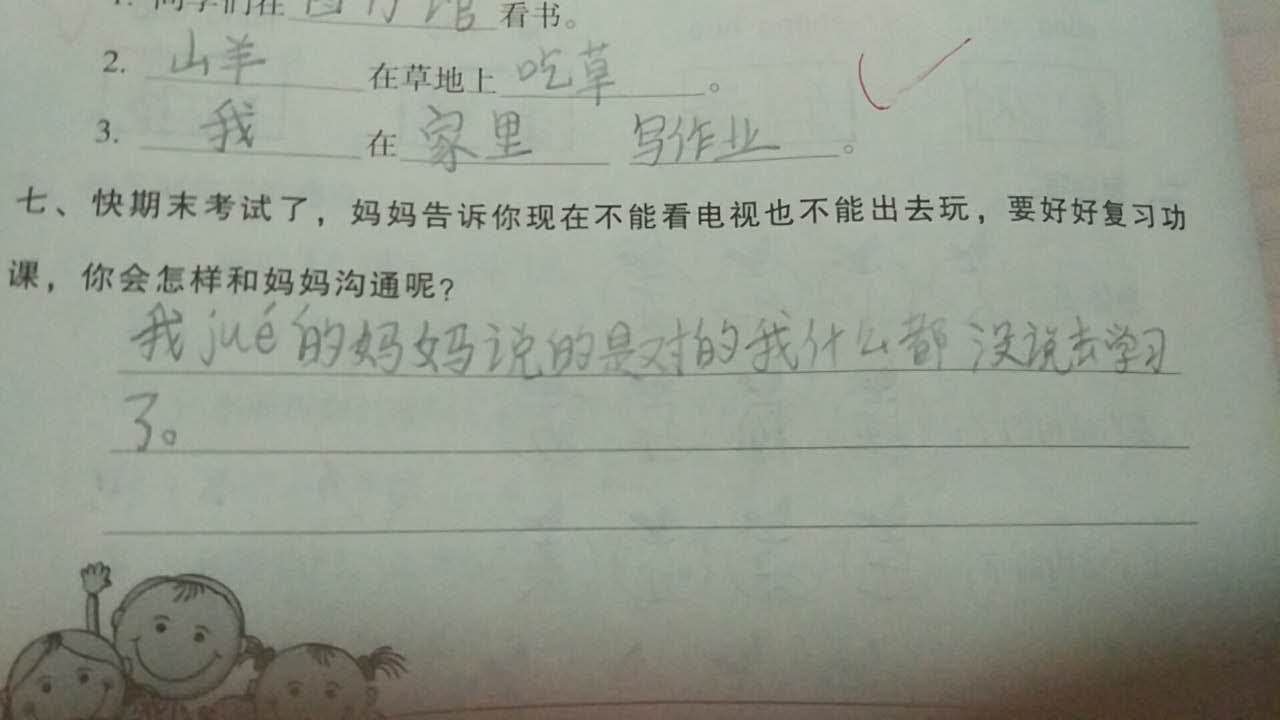 1. 同学们在 图书馆 看书。
2. 山羊 在草地上 吃草 。
3. 我 在 家里 写作业 。
七、快期末考试了，妈妈告诉你现在不能看电视也不能出去玩，要好好复习功
课，你会怎样和妈妈沟通呢？
我jué的妈妈说的是对的我什么都没说去学习
了。